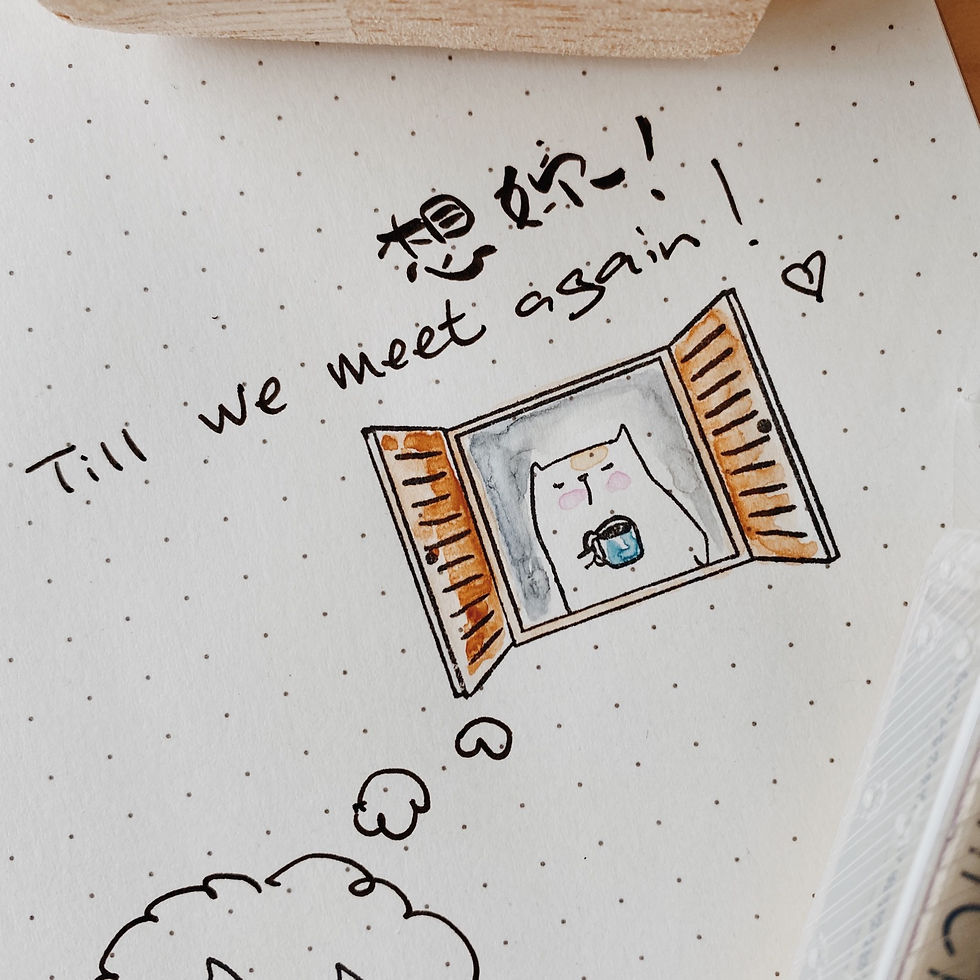 想妳！
Till we meet again!